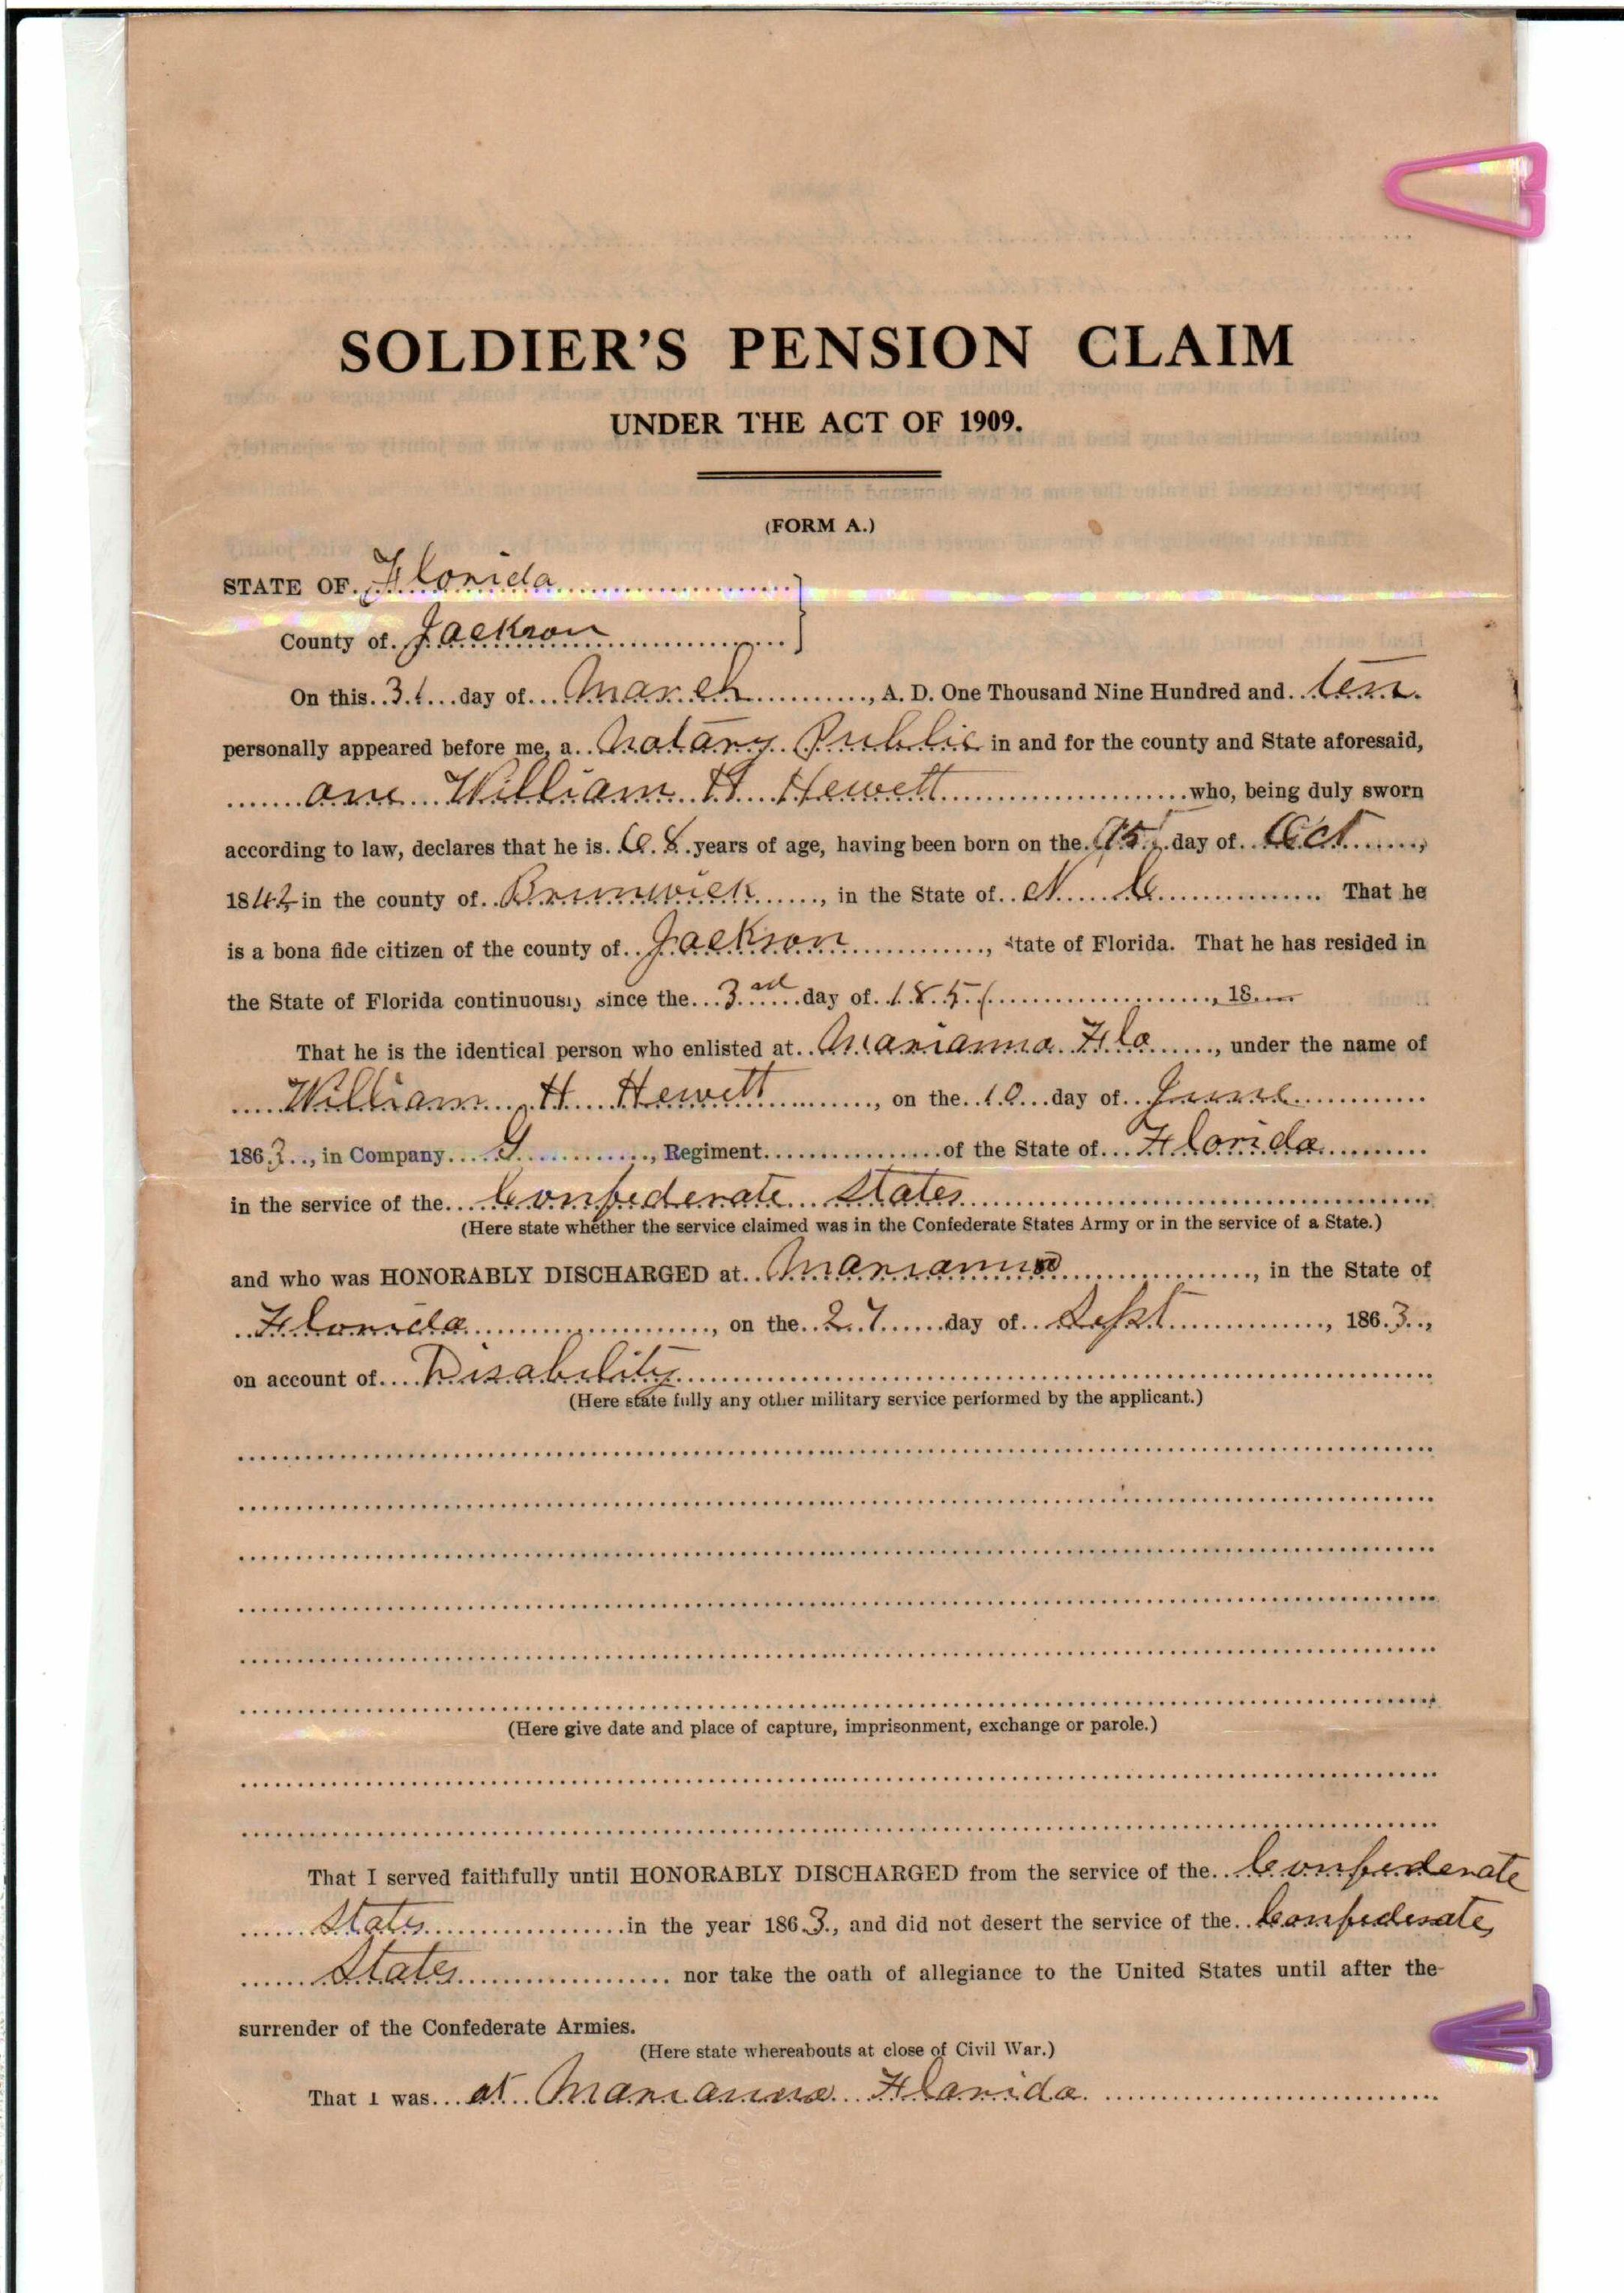 SOLDIER'S PENSION CLAIM
UNDER THE ACT OF 1909.
(FORM A.)
STATE OF Florida
County of Jackson
On this 31 day of March, A. D. One Thousand Nine Hundred and ten
personally appeared before me, a Notary Public in and for the county and State aforesaid,
one William H Hewett who, being duly sworn
according to law, declares that he is 68 years of age, having been born on the day of Oct,
1842 in the county of Brunswick, in the State of N. C. That he
is a bona fide citizen of the county of Jackson, State of Florida. That he has resided in
the State of Florida continuously since the 3rd day of 1851, 18
That he is the identical person who enlisted at Marianna Fla, under the name of
William H Hewett, on the 10 day of June
1863, in Company G, Regiment of the State of Florida
in the service of the Confederate States
(Here state whether the service claimed was in the Confederate States Army or in the service of a State.)
and who was HONORABLY DISCHARGED at Marianna, in the State of
Florida, on the 27 day of Sept, 1863,
on account of Disability
(Here state fully any other military service performed by the applicant.)
(Here give date and place of capture, imprisonment, exchange or parole.)
That I served faithfully until HONORABLY DISCHARGED from the service of the Confederate
States in the year 1863, and did not desert the service of the Confederate
States nor take the oath of allegiance to the United States until after the
surrender of the Confederate Armies.
(Here state whereabouts at close of Civil War.)
That I was at Marianna Florida